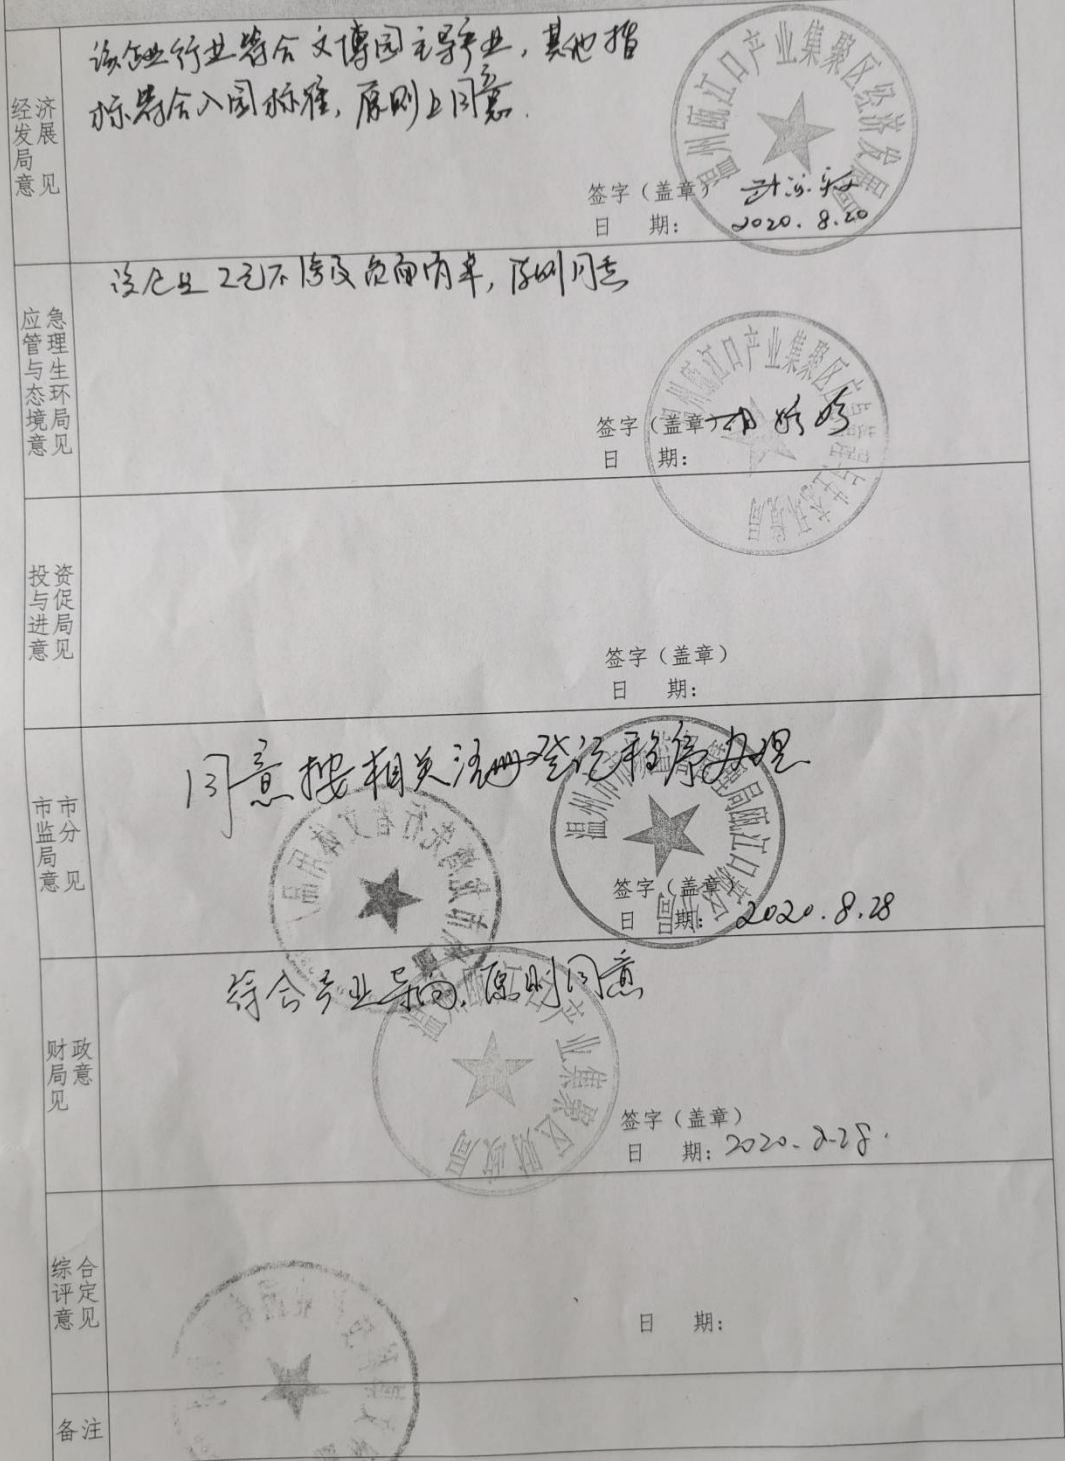 经济
发展
局
意见
该企业行业符合文博园主导产业，其他指
标符合入园标准，原则上同意.
温州瓯江口产业集聚区经济发展局
签字（盖章）
日 期： 2020.8.20
应急
管理
与生
态环
境局
意见
该企业工艺不涉及负面清单，原则同意
温州瓯江口产业集聚区应急管理与生态环境局
签字（盖章）
日 期：
投资
与促
进局
意见
签字（盖章）
日 期：
市市
监分
局
意见
同意按相关注册登记程序办理
签字（盖章）
日 期： 2020.8.28
财政
局意
见
符合产业导向，原则同意
温州瓯江口产业集聚区财政局
签字（盖章）
日 期：2020.8.28.
综合
评定
意见
日 期：
备注